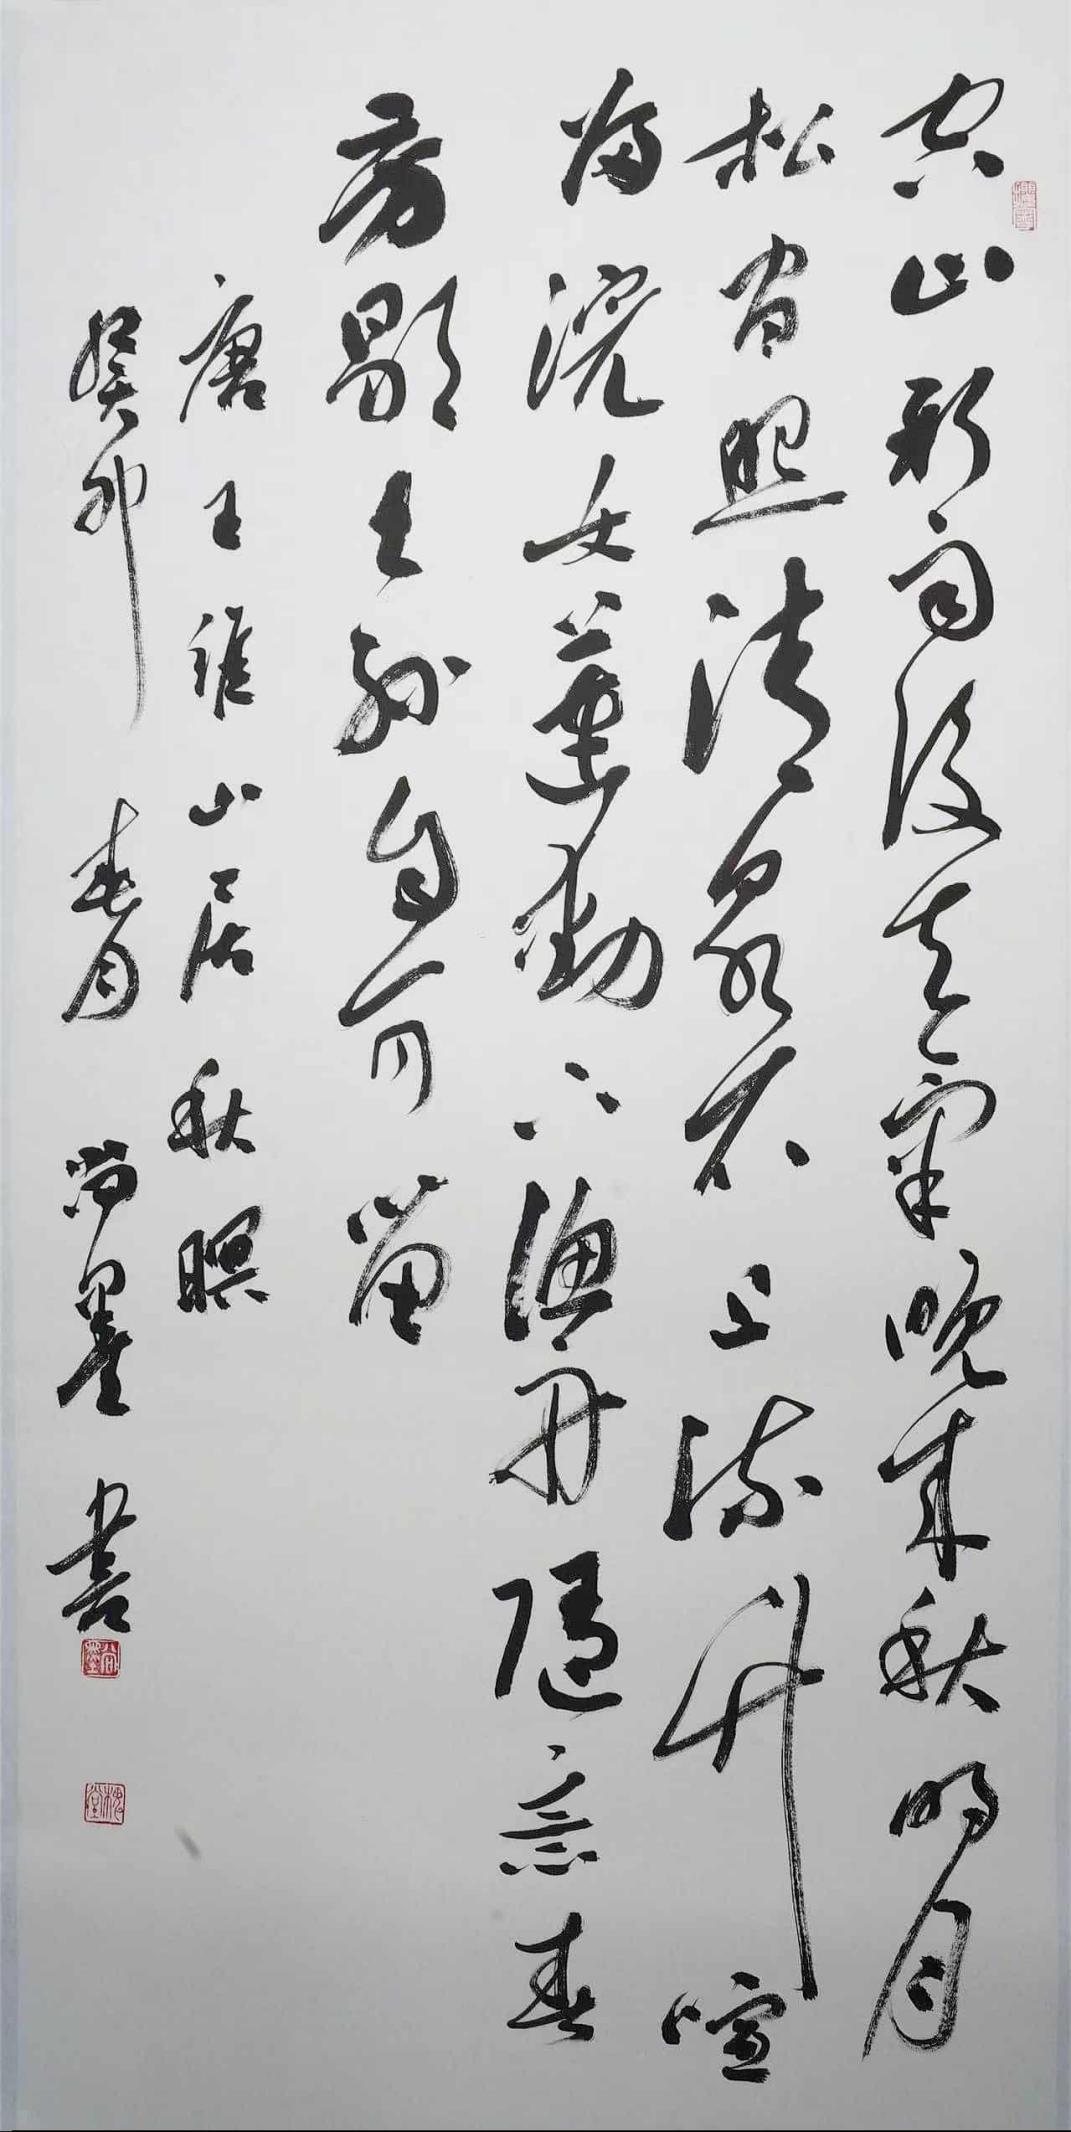 空山新雨後天氣晚來秋明月
松間照清泉石上流竹喧
歸浣女蓮動下漁舟隨意春
芳歇王孫自可留
唐王維山居秋暝
癸卯春月尚墨書
尚墨